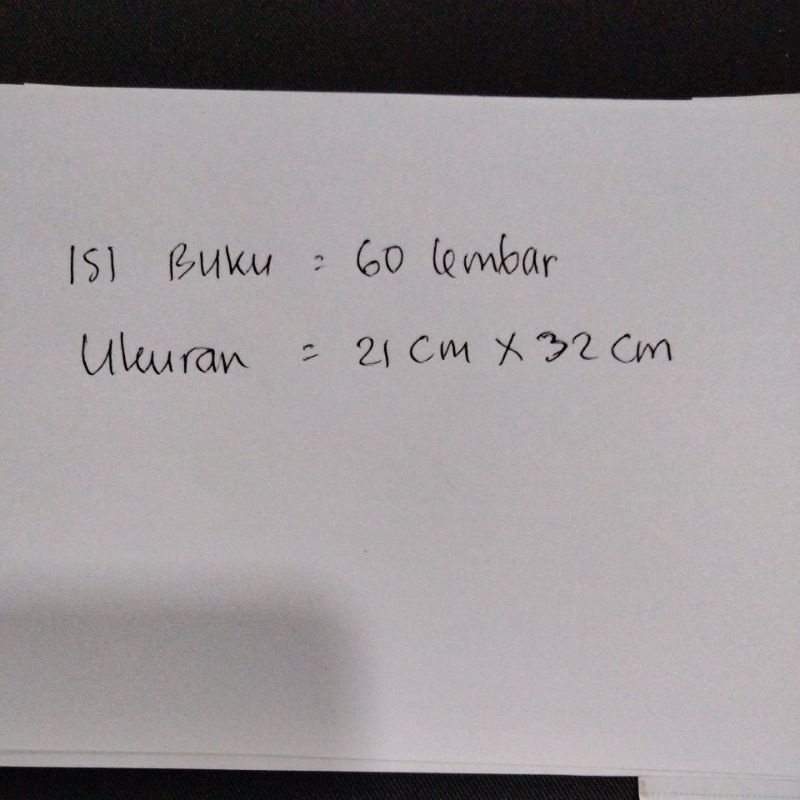 ISI BUKU = 60 lembar
Ukuran = 21 cm X 32 cm